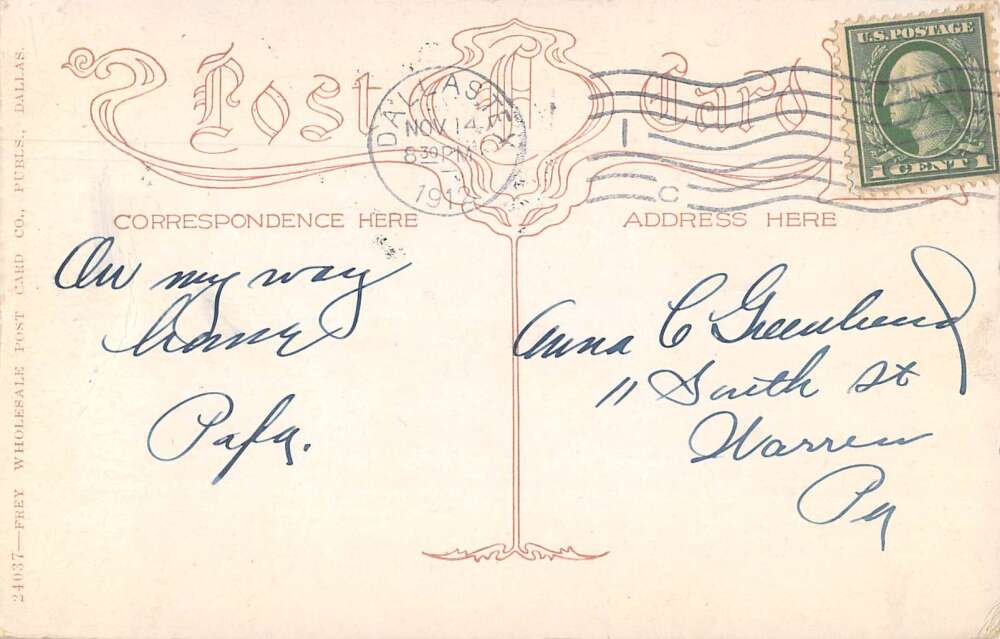 Post Card
DALLAS, TEX
NOV 14
8 30 PM
1912
1
C
U.S. POSTAGE
1 CENT 1
CORRESPONDENCE HERE
ADDRESS HERE
On my way
home
Papa.
Anna C Greenlund
11 South St
Warren
Pa
24037—FREY WHOLESALE POST CARD CO., PUBLS., DALLAS.